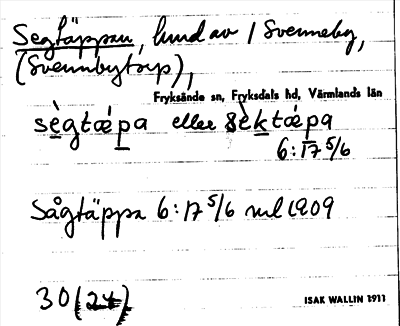 Segtäppan, hmd av 1 Svenneby,
(Svennbytorp),
Fryksände sn, Fryksdals hd, Värmlands län
sègtǽpa eller sèktǽpa
6:17 5/6
Sågtäppa 6:17 5/6 rul 1909
30 (24)
ISAK WALLIN 1911